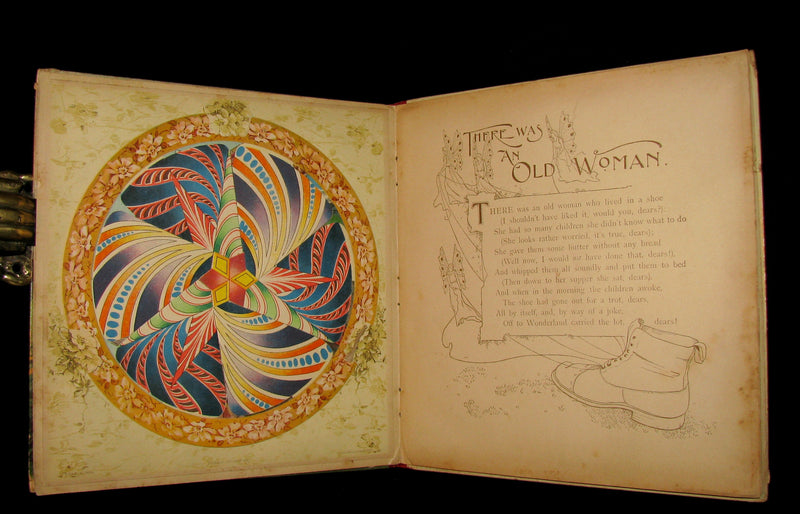 THERE WAS
AN
OLD WOMAN.
THERE was an old woman who lived in a shoe
(I shouldn't have liked it, would you, dears?):
She had so many children she didn't know what to do
(She looks rather worried, it's true, dears);
She gave them some butter without any bread
(Well now, I would not have done that, dears!),
And whipped them all soundly and put them to bed
(Then down to her supper she sat, dears).
And when in the morning the children awoke,
The shoe had gone out for a trot, dears,
All by itself, and, by way of a joke,
Off to Wonderland carried the lot, dears!